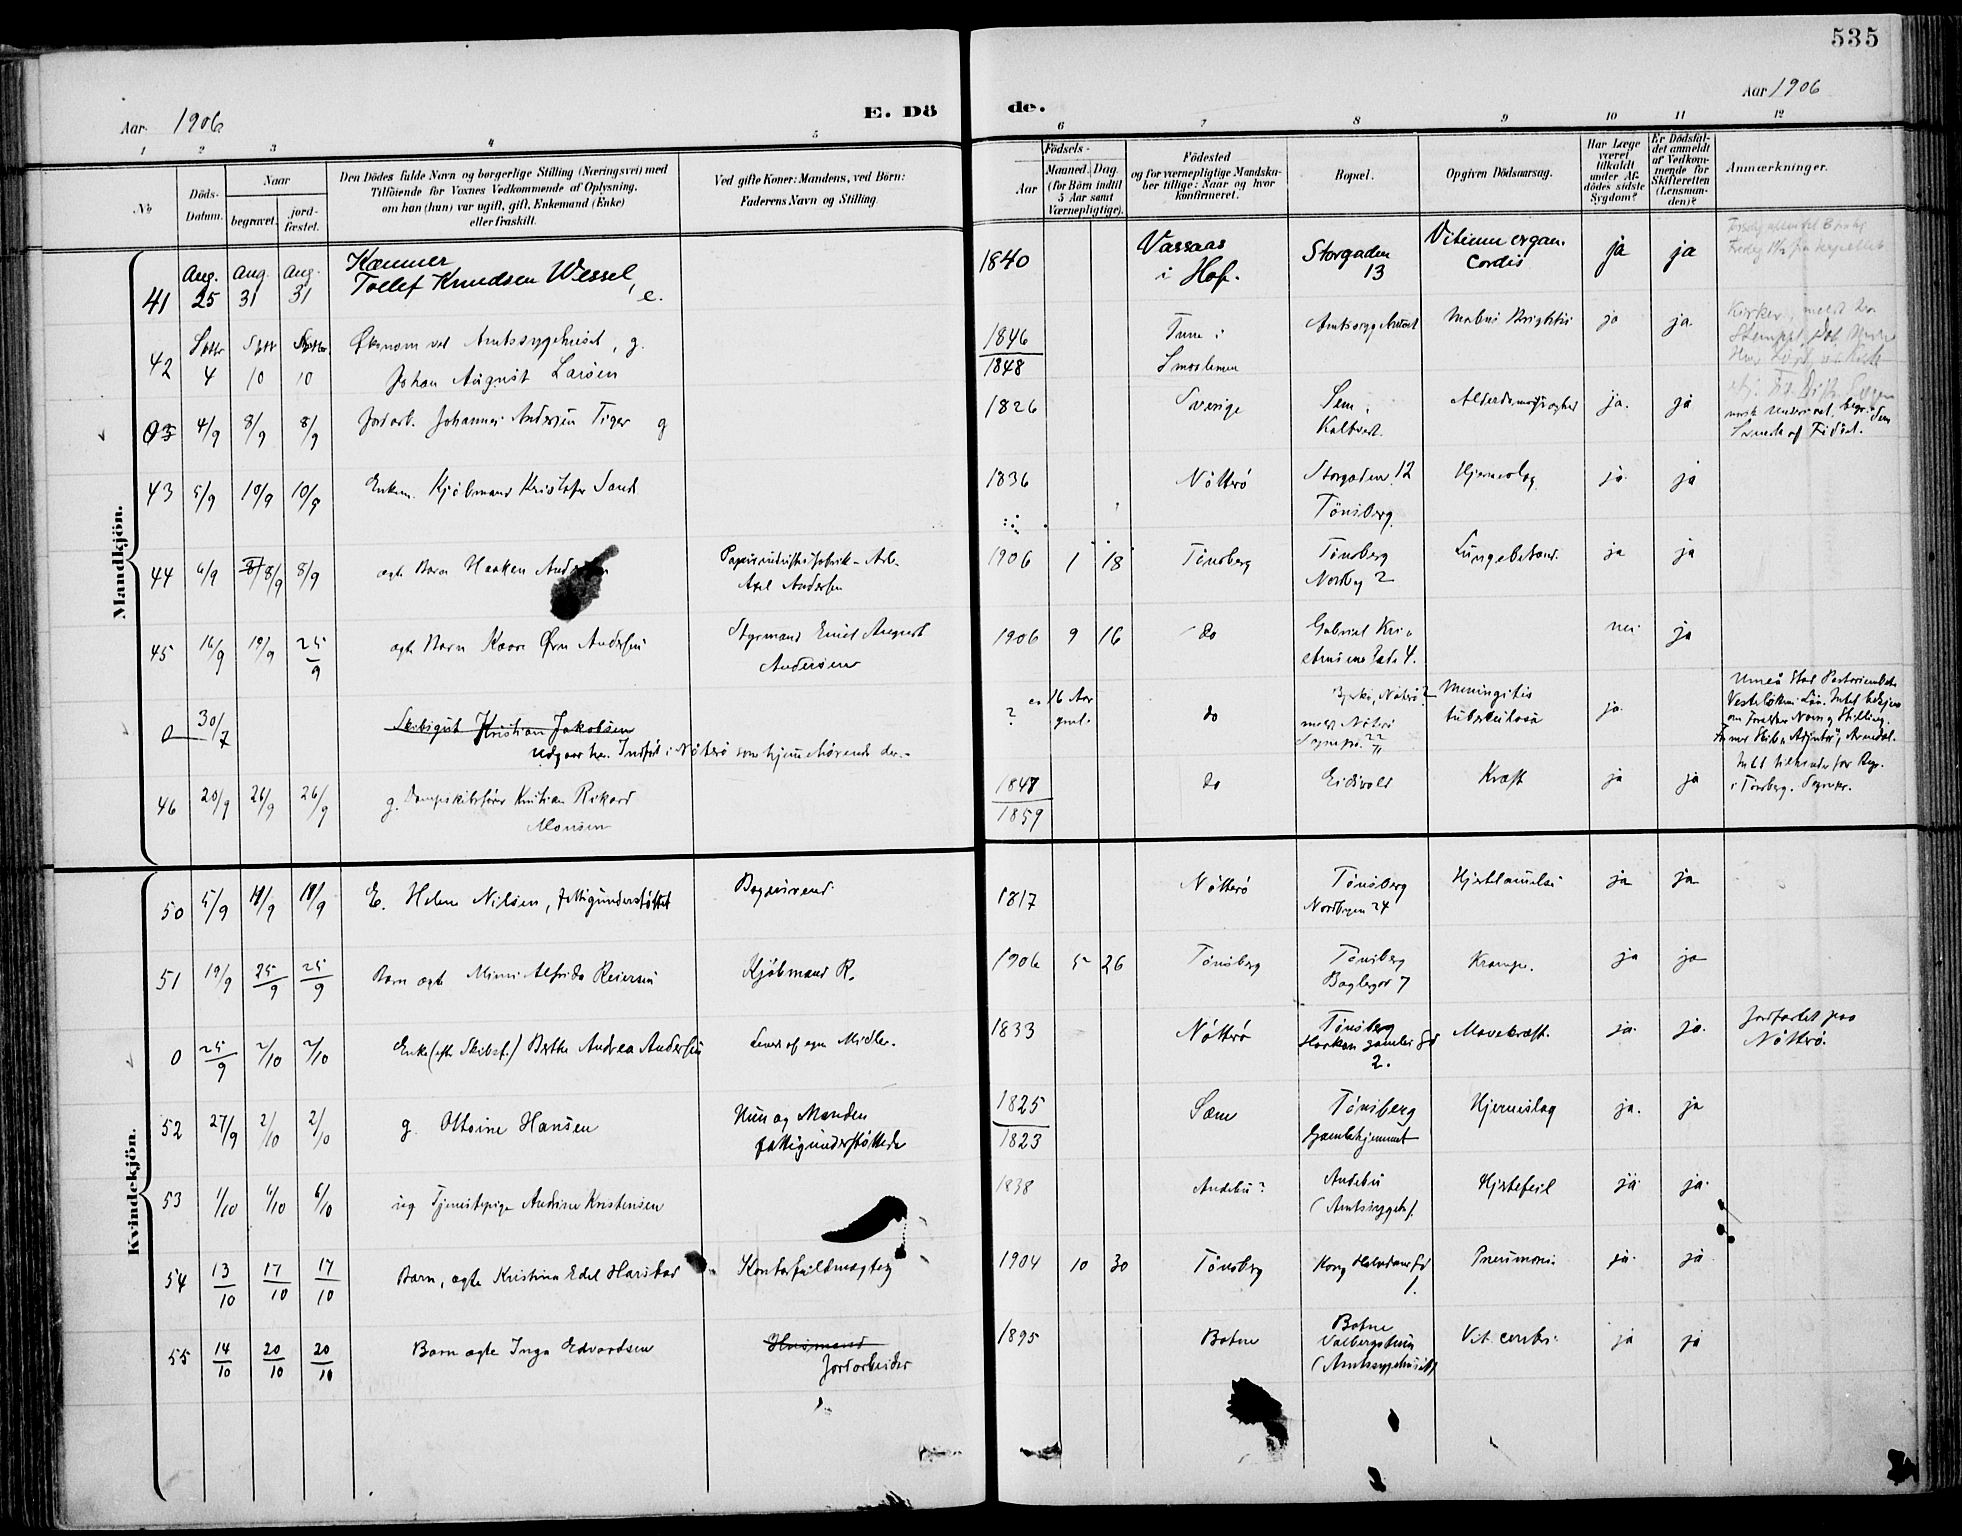 535
Aar 1906
E. Dö
de.
Aar 1906
1 2 3 4 5 6 7 8 9 10 11 12
No
Döds-Datum.
Naar
begravet.
jord-fæstet.
Den Dödes fulde Navn og borgerlige Stilling (Næringsvei) med
Tilföiende for Voxnes Vedkommende af Oplysning,
om han (hun) var ugift, gift, Enkemand (Enke)
eller fraskilt.
Ved gifte Koner: Mandens, ved Börn:
Faderens Navn og Stilling.
Födsels-
Aar
Maaned. Dag.
(for Börn indtil
5 Aar samt
Værnepligtige).
Födested
og for værnepligtige Mandska-
ber tillige: Naar og hvor
konfirmeret.
Bopæl.
Opgiven Dödsaarsag.
Har Læge
været
tilkaldt
under Af-
dödes sidste
Sygdom?
Er Dödsfal-
det anmeldt
af Vedkom-
mende for
Skifteretten
(Lensman-
den)?
Anmærkninger.
Mandkjön.
41 Aug. 25 Aug. 31 Aug. 31 Kæmner
Tollef Knudsen Wessel, e. 1840 Vassaas
i Hof. Storgaden
13 Vitium organ.
cordis ja ja
42 Septbr 4 Septbr 10 Septbr 10 Økonom ved Amtssygehuset, g.
Johan August Larsen 1846
1848 ja ja.
4/9 8/9 8/9 Jordarb. Johannes Andersen Tiger g 1826 Sverige Sem ja. ja
43 5/9 10/9 10/9 Enkem. Kjøbmand Kristofer Sand 1836 Nøtterø Storgaden 12
Tønsberg Hjerneslag ja ja
44 6/9 8/9 8/9 ægte Barn Haaken
Axel Andersen 1906 1 18 Tønsberg Tønsberg
Nordby 2 Lungebetænd. ja ja
45 16/9 19/9 25/9 ægte Barn Kaare Ørn Andersen Styrmand Emil August
Andersen 1906 9 16 do nei ja
0 30/7 Skibsgut Kristian Jakobsen
Udgaar her. Indført i Nøtterø som hjemmehørende der.- ? 16 Aar
gml. do Meningitis
tuberkulosa ja.
46 20/9 26/9 26/9 g. Dampskibsfører Kristian Rikard
Monsen 1847
1859 do Eidsvold Kræft ja ja
Kvindekjön.
50 5/9 11/9 11/9 E. Helene Nilsen, fattigunderstøttet 1817 Nøtterø Tønsberg
Nordbyen 24 Hjertelammelse ja ja
51 19/9 25/9 25/9 Barn ægte Mimi Alfrida Reiersen Kjøbmand R. 1906 5 26 Tønsberg Tønsberg
Baglergd 7 Krampe. ja ja
0 25/9 2/10 2/10 Enke (efter Skibsf.) Berthe Andrea Andersen Levede af egne Midler. 1833 Nøtterø Tønsberg
Haakon gamles gd
2. Mavekræft. ja. ja. Jordfæstet paa
Nøtterø.
52 27/9 2/10 2/10 g. Ottoine Hansen Hun og Manden
fattigunderstøttede 1825
1823 Sæm Tønsberg
Gamlehjemmet Hjerneslag ja. ja
53 1/10 6/10 6/10 ug Tjenestepige Andrine Kristensen 1838 Andebu? Andebu
(Amtssygeh). Hjertefeil ja. ja.
54 13/10 17/10 17/10 Barn, ægte Kristina Edel Harstad Kontorfuldmægtig 1904 10 30 Tønsberg Kong Halvdansgd
1. Pneumoni. ja. ja.
55 14/10 20/10 20/10 Barn ægte Inga Edvardsen Husmand
Jordarbeider 1895 Botne Botne
(Amtssygehuset) Vit. cordis. ja ja